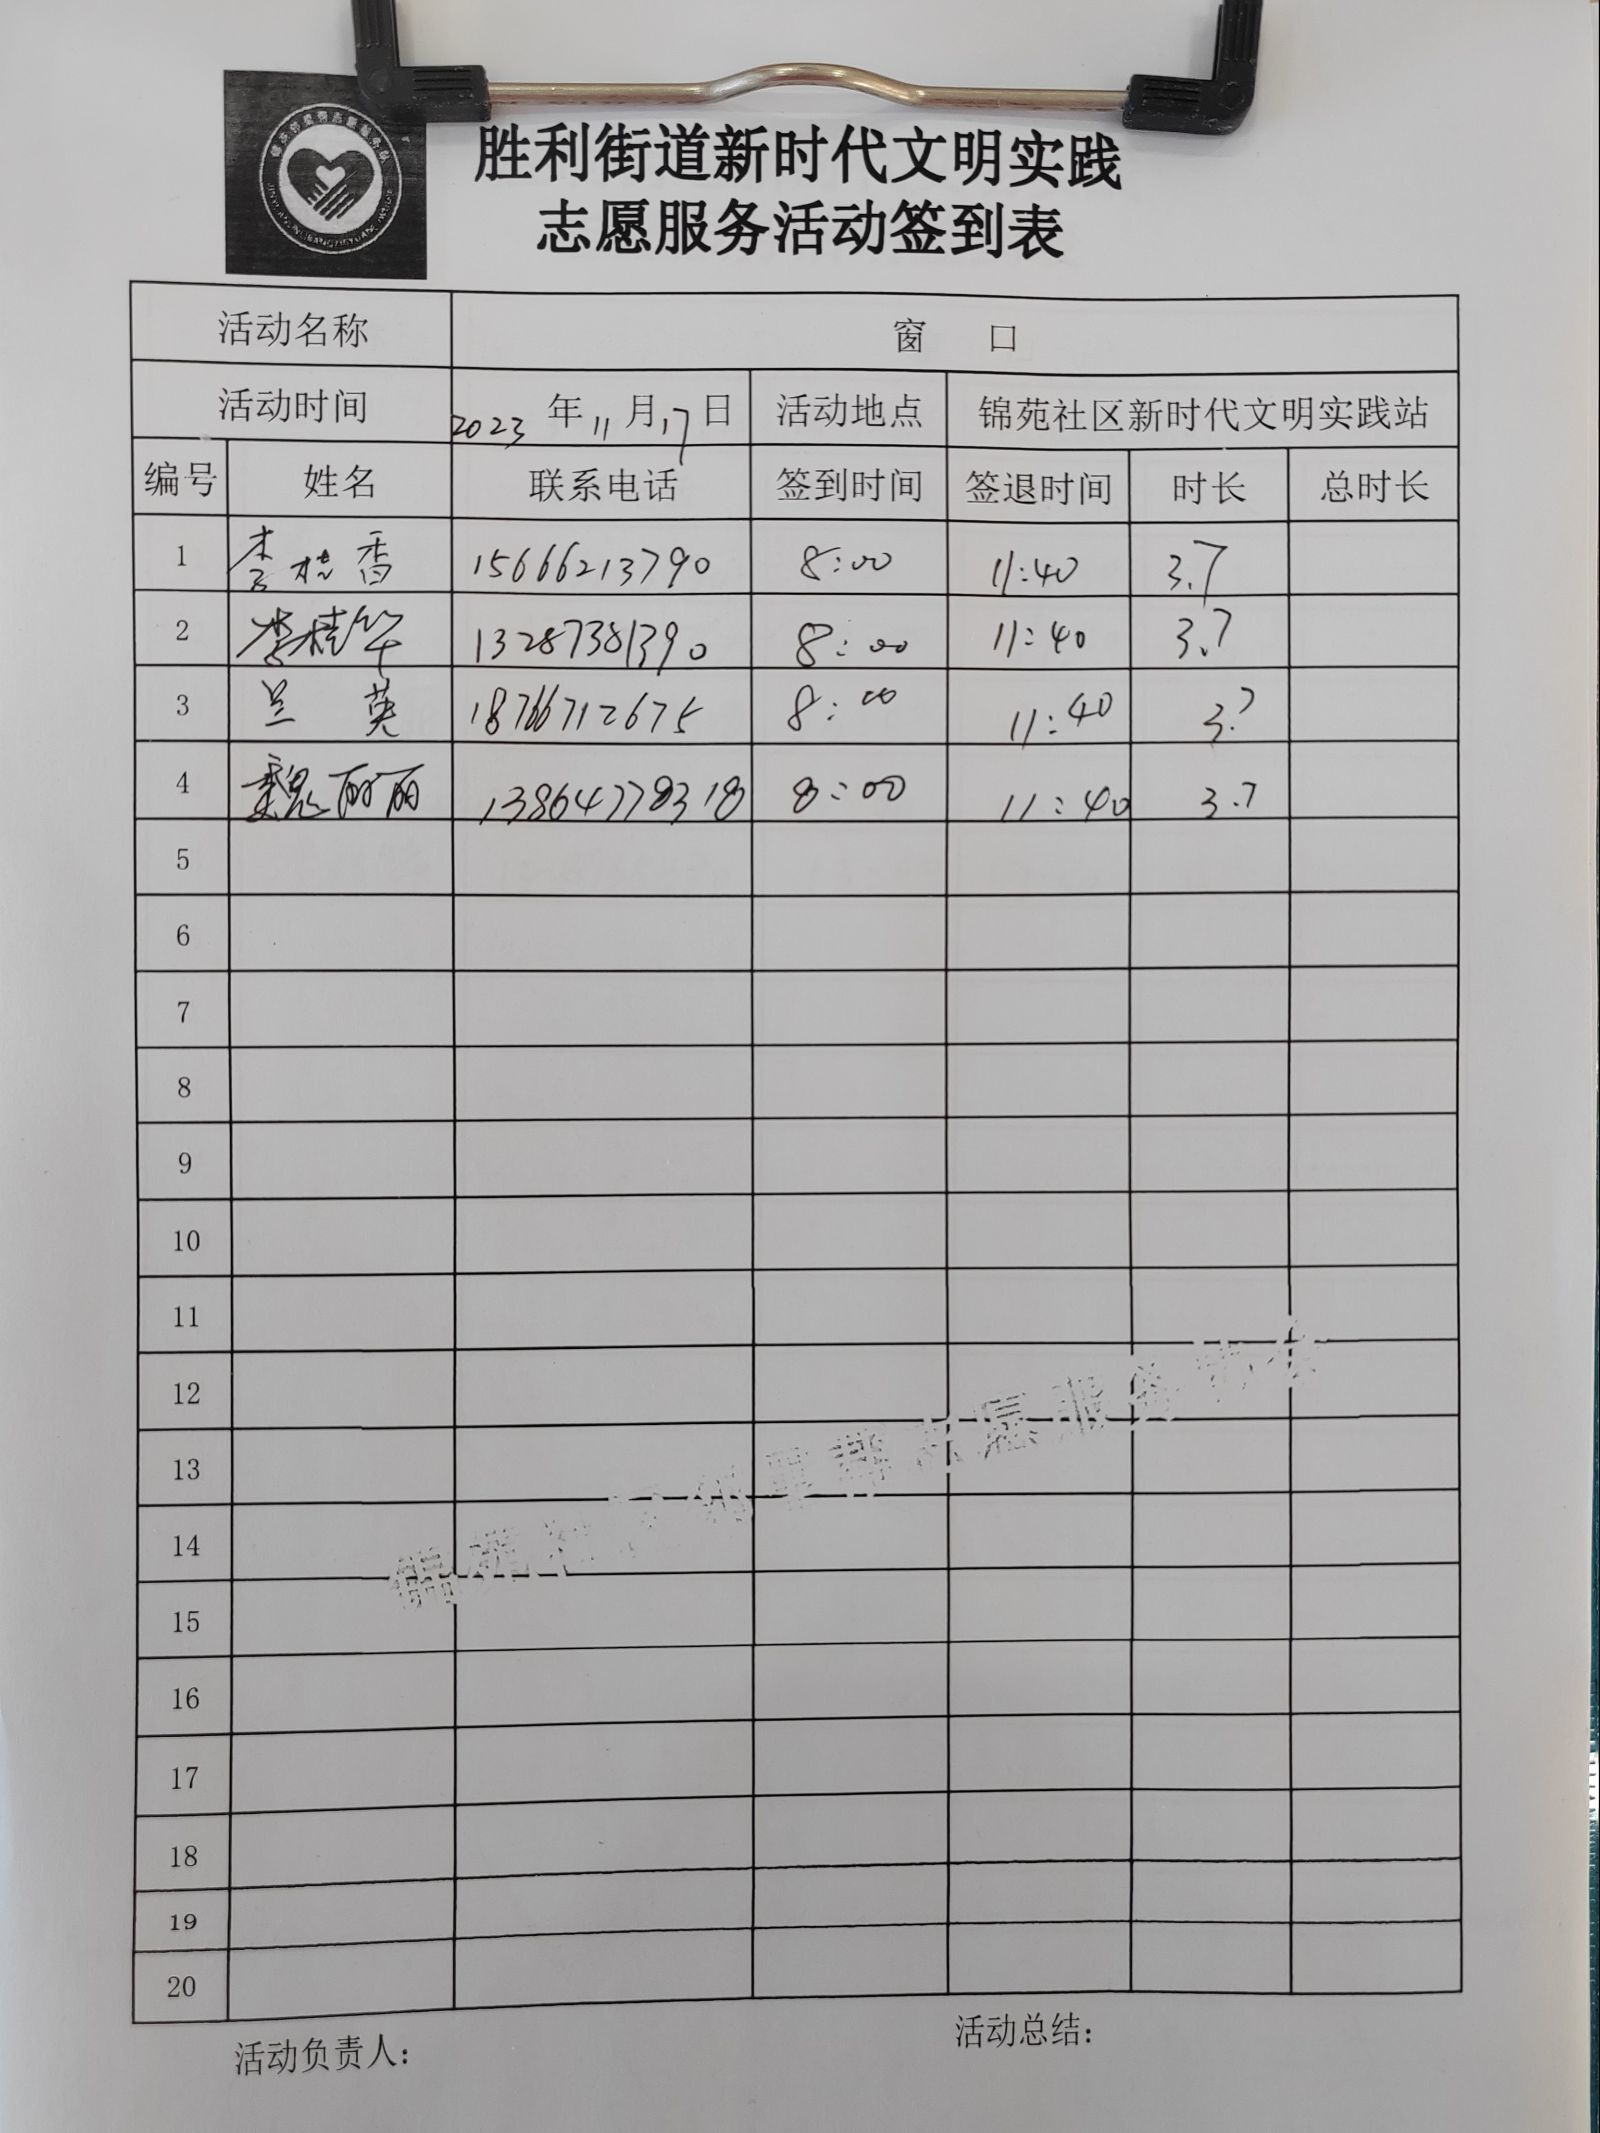 胜利街道新时代文明实践
志愿服务活动签到表
活动名称 窗 口
活动时间 2023 年 11 月 17 日 活动地点 锦苑社区新时代文明实践站
编号 姓名 联系电话 签到时间 签退时间 时长 总时长
1 李桂香 15666213790 8:00 11:40 3.7
2 李桂华 13287381390 8:00 11:40 3.7
3 兰英 18766712675 8:00 11:40 3.7
4 魏丽丽 13864778318 8:00 11:40 3.7
5
6
7
8
9
10
11
12
13
14
15
16
17
18
19
20
活动负责人: 活动总结: